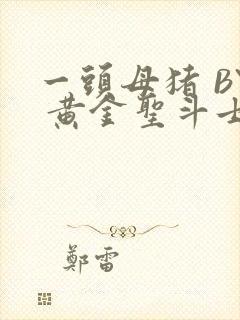 一頭母猪 BY
黄金聖斗士
鄭雷